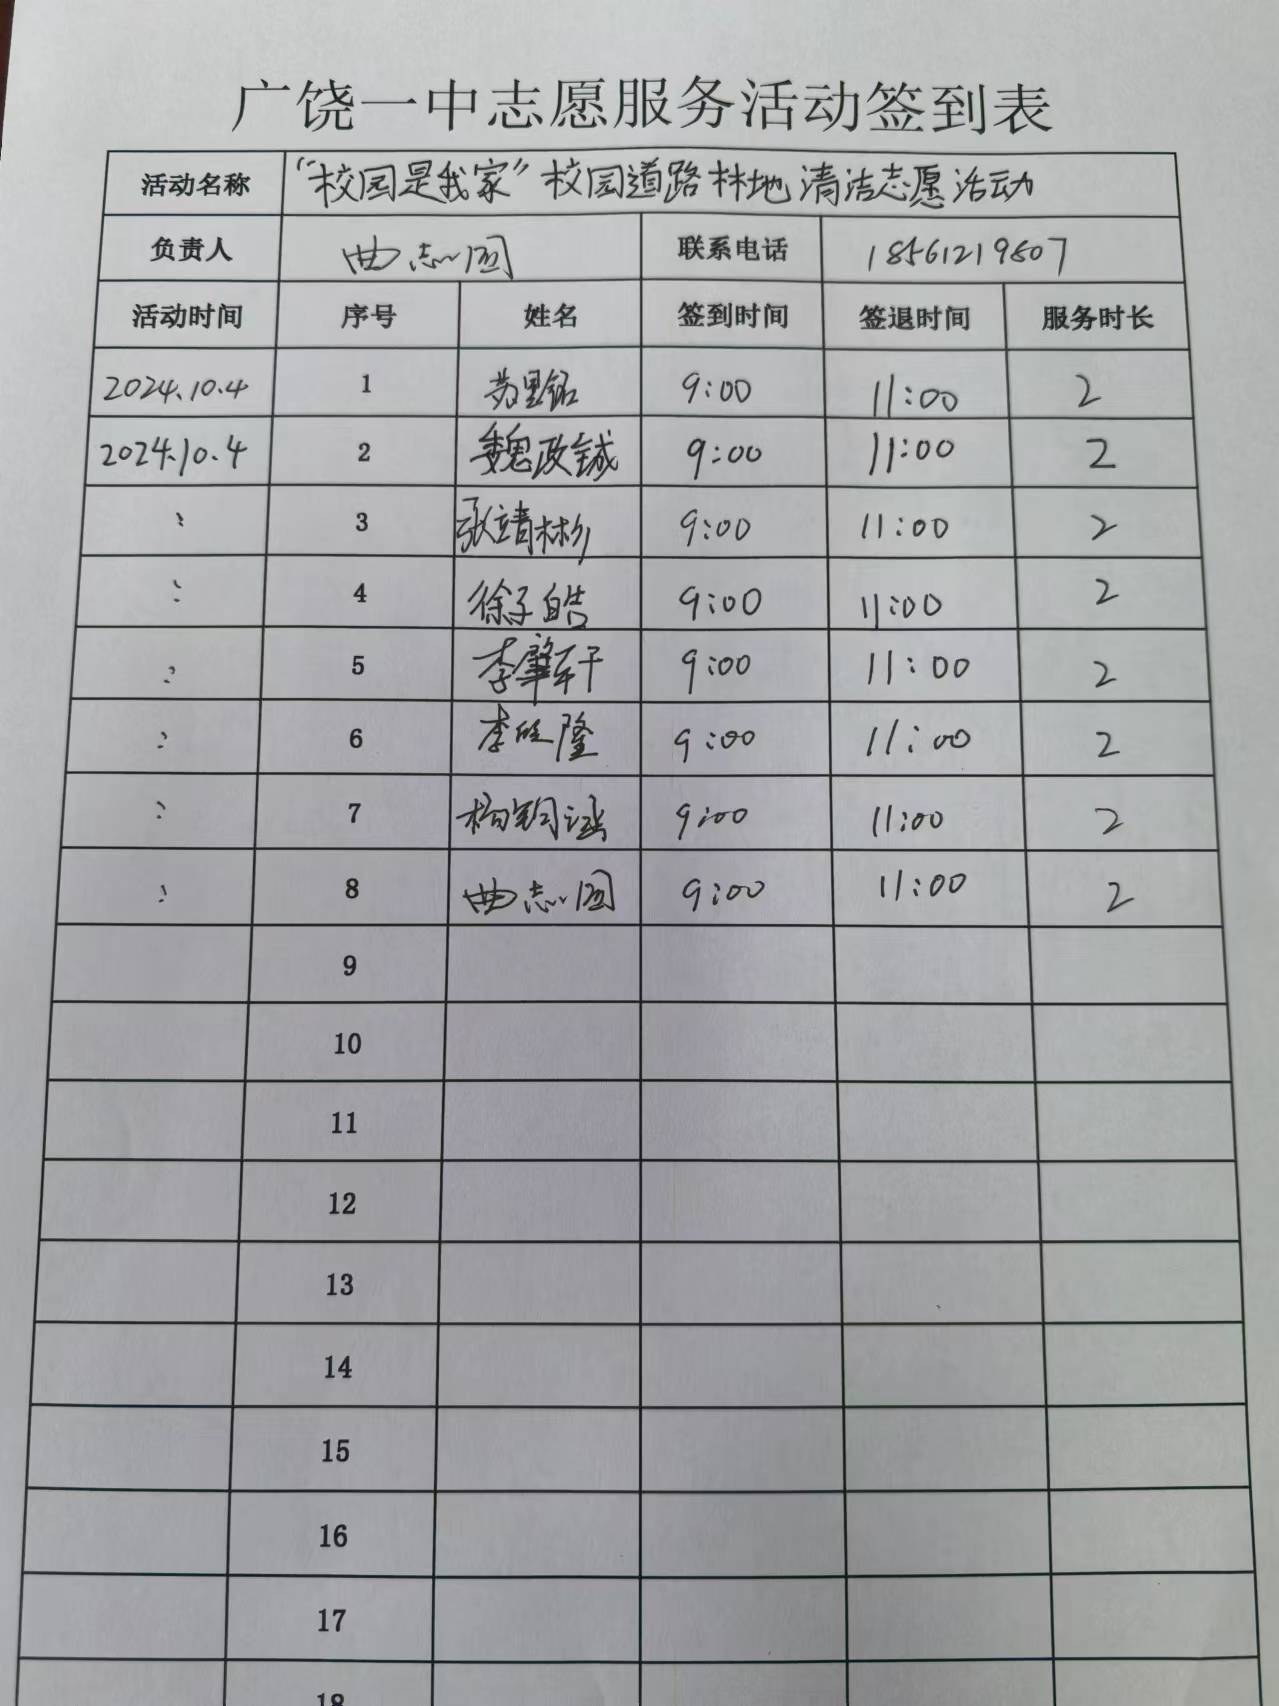 广饶一中志愿服务活动签到表
活动名称 "校园是我家"校园道路林地清洁志愿活动
负责人 曲志国 联系电话 18561219807
活动时间 序号 姓名 签到时间 签退时间 服务时长
2024.10.4 1 9:00 11:00 2
2024.10.4 2 魏政铖 9:00 11:00 2
〃 3 张靖彬 9:00 11:00 2
〃 4 徐子皓 9:00 11:00 2
〃 5 李肇轩 9:00 11:00 2
〃 6 李 隆 9:00 11:00 2
〃 7 杨钧涵 9:00 11:00 2
〃 8 曲志国 9:00 11:00 2
9
10
11
12
13
14
15
16
17
18